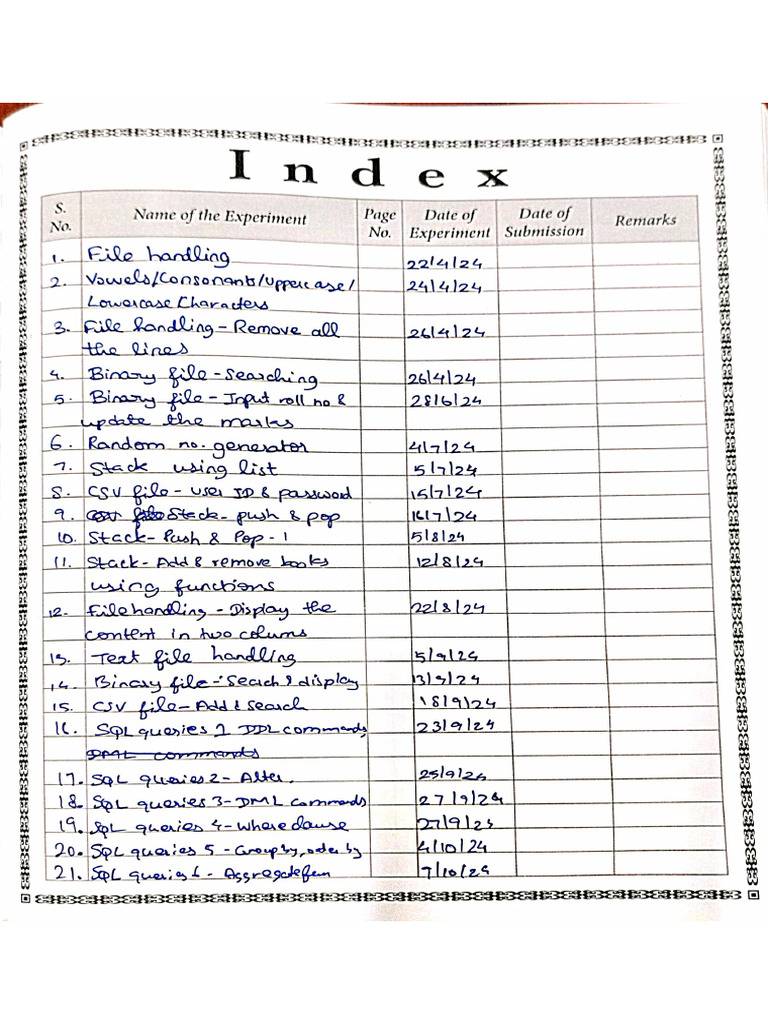 Index
S. No. Name of the Experiment Page No. Date of Experiment Date of Submission Remarks
1. File handling 22/4/24
2. Vowels/Consonants/Uppercase/ 24/4/24
Lowercase Characters
3. File handling - Remove all 26/4/24
the lines
4. Binary file - Searching 26/4/24
5. Binary file - Input roll no & 28/6/24
update the marks
6. Random no. generator 4/7/24
7. Stack using list 5/7/24
8. CSV file - User ID & password 15/7/24
9. Stack - push & pop 16/7/24
10. Stack - Push & Pop - 1 5/8/24
11. Stack - Add & remove books 12/8/24
using functions
12. File handling - Display the 22/8/24
content in two colums
13. Text file handling 5/9/24
14. Binary file - Search & display 13/9/24
15. CSV file - Add & search 18/9/24
16. SQL queries 1 DDL commands, 23/9/24
DML commands
17. SQL queries 2 - Alter. 25/9/24
18. SQL queries 3 - DML commands 27/9/24
19. SQL queries 4 - Where clause 27/9/24
20. SQL queries 5 - Group by, order by 4/10/24
21. SQL queries 6 - Aggregate fun 7/10/24